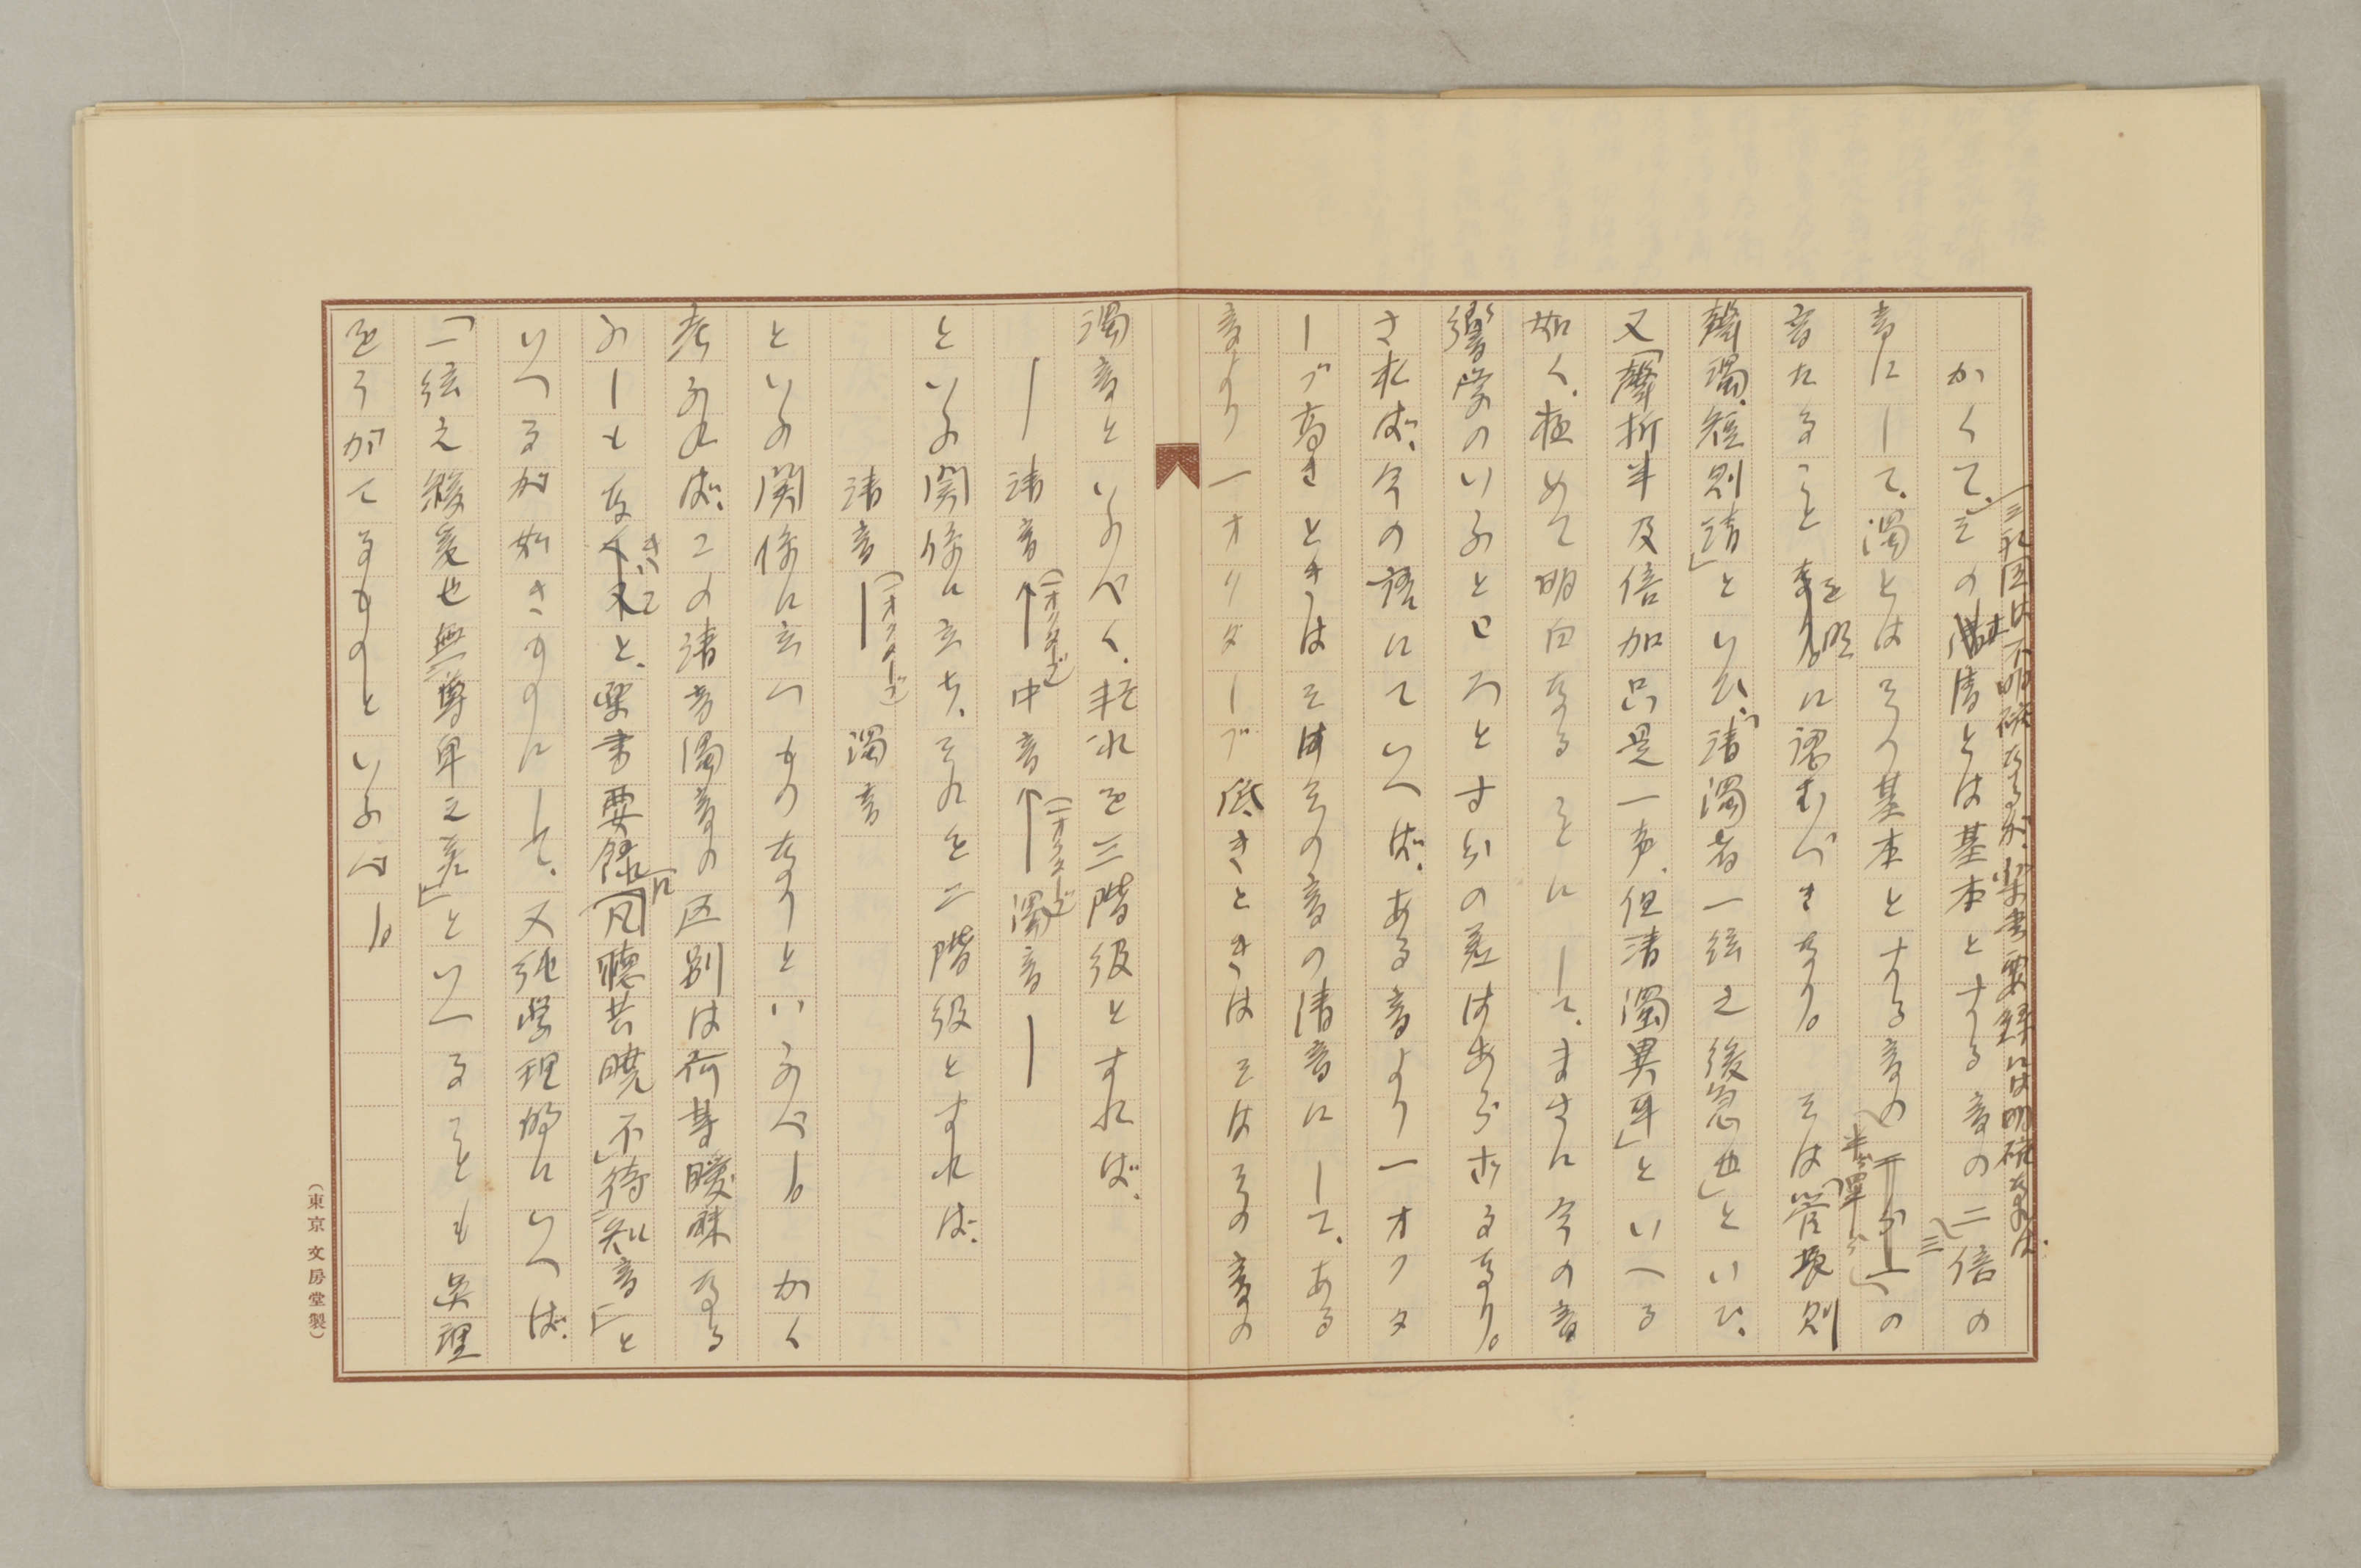 かくて、その清とは基本とする音の二倍の
音にして、濁とはその基本とする音の
音たることを明に認むべきなり。そは「管長則
声濁、短則清」といひ、「清濁者一絃之緩急也」といひ、
又「声折半及倍加只是一声、但清濁異耳」といへる
如く、極めて明白なることにして、まさに今の音
響学のいふところとすがの差はあらざるなり。
されば、今の語にていへば、ある音より一オクタ
ーブ高きときはそはその音の清音にして、ある
音より一オクターブ低きときはそはその音の
濁音といふべく、若これを三階級とすれば、
清音(一オクターブ)中音(一オクターブ)濁音
といふ関係に立ち、それを二階級とすれば、
清音(一オクターブ)濁音
といふ関係に立つものなりといふべし。かく
考ふれば、この清音濁音の区別は何等曖昧なる
ふしもなきに、楽書要録に「凡聴共暁、不待知音」と
いへるが如きものにして、又純学理的にいへば、
「絃之緩急也無尊卑之差」といへることも吳理
をうがてるものといふべし。
(東京 文房堂製)